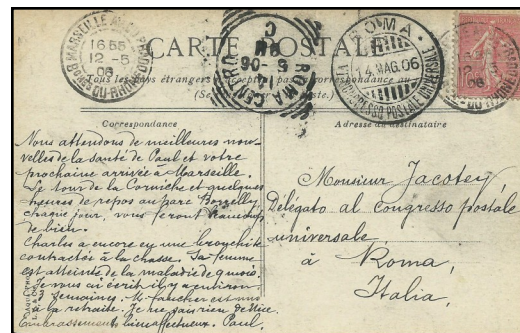 MARSEILLE
16 55
12 - 5
06
BCHES-DU-RHONE
CARTE POSTALE
Tous les pays étrangers acceptent pas correspondance au
ROMA CENTRO
14
5-06
ROMA
14 MAG.06
VI CONGRESSO POSTALE UNIVERSALE
Correspondance
Adresse du destinataire
Nous attendons de meilleures nou-
velles de la santé de Paul et votre
prochaine arrivée à Marseille.
Le tour de la Corniche et quelques
heures de repos au parc Borelly
chaque jour, vous feront beaucoup
de bien.
Charles a encore eu une bronchite
contractée à la chasse. Sa femme
est atteinte de la maladie de
Je vous ai écrit il y a environ
3 semaines. M. faucher est
Je ne sais rien de Nice.
Embrassements bien affectueux. Paul.
Monsieur Jacotey
Délégato al congresso postale
universale,
à Roma,
Italia,